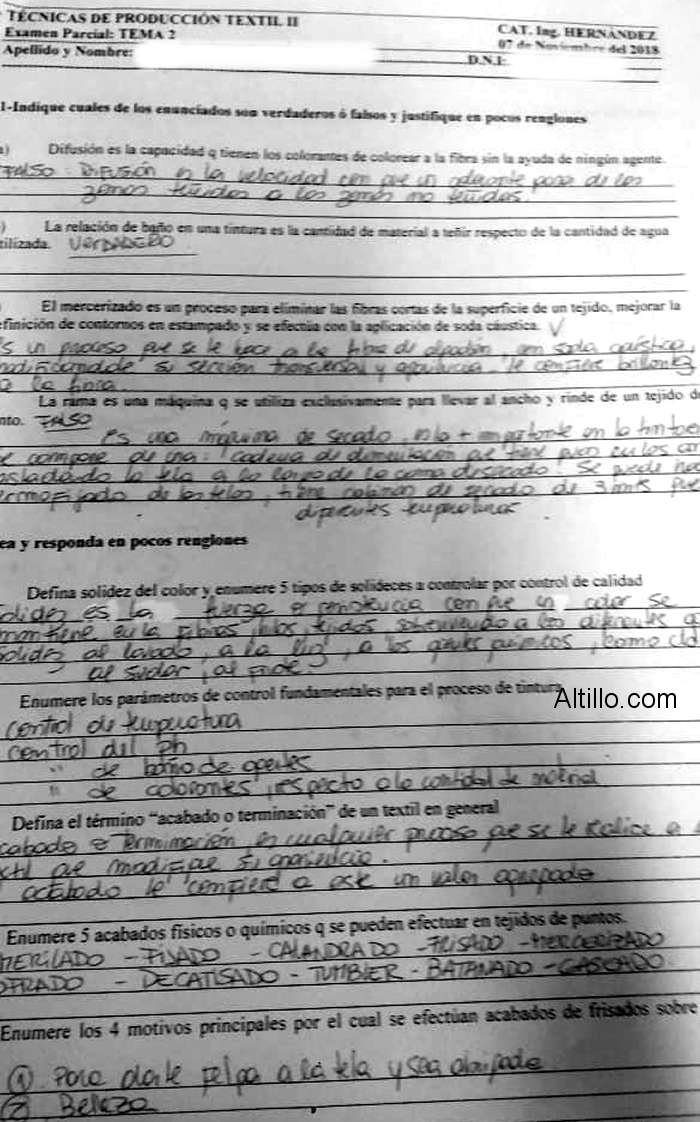 TÉCNICAS DE PRODUCCIÓN TEXTIL II
CAT. Ing. HERNÁNDEZ
Examen Parcial: TEMA 2
07 de Noviembre del 2018
Apellido y Nombre:
D.N.I:
1-Indique cuales de los enunciados son verdaderos ó falsos y justifique en pocos renglones
a) Difusión es la capacidad q tienen los colorantes de colorear a la fibra sin la ayuda de ningún agente.
FALSO: Difusión es la velocidad con que un colorante pasa de las
zonas teñidas a las zonas no teñidas.
) La relación de baño en una tintura es la cantidad de material a teñir respecto de la cantidad de agua
tilizada. VERDADERO
El mercerizado es un proceso para eliminar las fibras cortas de la superficie de un tejido, mejorar la
efinición de contornos en estampado y se efectúa con la aplicación de soda cáustica. V
s un proceso que se le hace a la fibra de algodón, con soda caustica,
modificandole su sección transversal y apariencia, le confiere brillantez
a la fibra.
La rama es una máquina q se utiliza exclusivamente para llevar al ancho y rinde de un tejido de
nto. FALSO
es una máquina de secado, es la + importante en la tintore
se compone de una: cadena de alimentación que tiene
asladando la tela a lo largo de la cama de secado. Se puede
ermofijado de las telas, tiene de secado de 3 mts
diferentes temperaturas.
ea y responda en pocos renglones
Defina solidez del color y enumere 5 tipos de solideces a controlar por control de calidad
olidez es la fuerza o resistencia con que un color se
mantiene en la fibras, hilos, tejidos sobreviviendo a los diferentes
solidez al lavado, a la luz, a los agentes quimicos, como
al sudor, al frote
Enumere los parámetros de control fundamentales para el proceso de tintura
Altillo.com
control de temperatura
control del Ph
" de baño de agentes
" de colorantes, respecto a la cantidad de material
Defina el término “acabado o terminación” de un textil en general
cabado o Terminación, es cualquier proceso que se le realice a
til que modifique su apariencia.
acabado le confiere a este un valor agregado
Enumere 5 acabados físicos o químicos q se pueden efectuar en tejidos de puntos.
MERILADO - FIJADO - CALANDRADO - FRISADO - MERCERIZADO
OFRADO - DECATISADO - TUMBLER - BATANADO - GASEADO.
Enumere los 4 motivos principales por el cual se efectúan acabados de frisados sobre
① Para darle felpa a la tela y sea abrigada
② Belleza